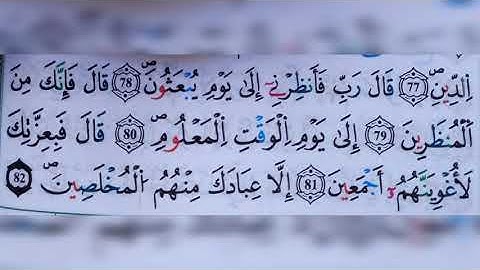 اِلدِّينِۖ 77 قَالَ رَبِّ فَأَنظِرْنِےٓ إِلَىٰ يَوْمِ يُبْعَثُونَۖ 78 قَالَ فَإِنَّكَ مِنَ
اَلْمُنظَرِينَ 79 إِلَىٰ يَوْمِ اِلْوَقْتِ اِلْمَعْلُومِۖ 80 قَالَ فَبِعِزَّتِكَ
لَأُغْوِيَنَّهُمُۥٓ أَجْمَعِينَ 81 إِلَّا عِبَادَكَ مِنْهُمُ اُلْمُخْلَصِينَۖ 82